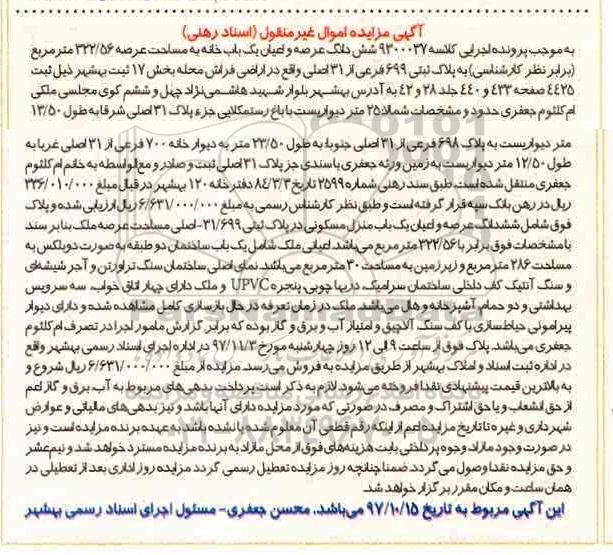 آگهی مزایده اموال غیرمنقول (اسناد رهنی)
به موجب پرونده اجرایی کلاسه ۹۳۰۰۰۳۷ شش دانگ عرصه و اعیان یک باب خانه به مساحت عرصه ۳۲۲/۵۶ متر مربع
(برابر نظر کارشناسی) به پلاک ثبتی ۶۹۹ فرعی از ۳۱ اصلی واقع در اراضی فراش محله بخش ۱۷ ثبت بهشهر ذیل ثبت
۴۴۲۵ صفحه ۴۳۳ و ۴۴۰ جلد ۲۸ و ۴۲ به آدرس بهشهر بلوار شهید هاشمی نژاد چهل و ششم کوی مجلسی ملکی
ام کلثوم جعفری حدود و مشخصات شمالا ۲۵ متر دیواریست با باغ رستمکلایی جزء پلاک ۳۱ اصلی شرقا به طول ۱۳/۵۰
متر دیواریست به پلاک ۶۹۸ فرعی از ۳۱ اصلی جنوبا به طول ۲۳/۵۰ متر به دیوار خانه ۷۰۰ فرعی از ۳۱ اصلی غربا به
طول ۱۲/۵۰ متر دیواریست به زمین ورثه جعفری با سندی جز پلاک ۳۱ اصلی ثبت و صادر و مع الواسطه به خانم ام کلثوم
جعفری منتقل شده است. طبق سند رهنی شماره ۲۵۹۹ تاریخ ۸۴/۳/۳ دفترخانه ۱۲۰ بهشهر در قبال مبلغ ۳۳۶/۰۱۰/۰۰۰
ریال در رهن بانک سپه قرار گرفته است و طبق نظر کارشناس رسمی به مبلغ ۶/۶۳۱/۰۰۰/۰۰۰ ریال ارزیابی شده و پلاک
فوق شامل ششدانگ عرصه و اعیان یک باب منزل مسکونی در پلاک ثبتی ۳۱/۶۹۹- اصلی مساحت عرصه ملک بنا بر سند
با مشخصات فوق برابر با ۳۲۲/۵۶ متر مربع می باشد. اعیانی ملک شامل یک باب ساختمان دو طبقه به صورت دوبلکس به
مساحت ۲۸۶ متر مربع و زیرزمین به مساحت ۳۰ متر مربع می باشد. نمای اصلی ساختمان سنگ تراورتن و آجر شیشه ای
و سنگ آنتیک کف داخلی ساختمان سرامیک، دربها چوبی پنجره UPVC و ملک دارای چهار اتاق خواب، سه سرویس
بهداشتی و دو حمام، آشپزخانه و هال می باشد. ملک در زمان تعرفه در حال بازسازی کامل مشاهده شده و دارای دیوار
پیرامونی حیاط سازی با کف سنگ آلاچیق و امتیاز آب و برق و گاز بوده که برابر گزارش مامور اجرا در تصرف ام کلثوم
جعفری می باشد. پلاک فوق از ساعت ۹ الی ۱۲ روز چهارشنبه مورخ ۹۷/۱۱/۳ در اداره اجرای اسناد رسمی بهشهر واقع
در اداره ثبت اسناد و املاک بهشهر از طریق مزایده به فروش می رسد. مزایده از مبلغ ۶/۶۳۱/۰۰۰/۰۰۰ ریال شروع و
به بالاترین قیمت پیشنهادی نقدا فروخته می شود. لازم به ذکر است پرداخت بدهی های مربوط به آب، برق و گاز اعم
از حق انشعاب و یا حق اشتراک و مصرف در صورتی که مورد مزایده دارای آنها باشد و نیز بدهی های مالیاتی و عوارض
شهرداری و غیره تا تاریخ مزایده اعم از اینکه رقم قطعی آن معلوم شده یا نشده باشد به عهده برنده مزایده است و نیز
در صورت وجود مازاد، وجوه پرداختی بابت هزینه های فوق از محل مازاد به برنده مزایده مسترد خواهد شد و نیم عشر
و حق مزایده نقدا وصول می گردد. ضمنا چنانچه روز مزایده تعطیل رسمی گردد مزایده روز اداری بعد از تعطیلی در
همان ساعت و مکان مقرر برگزار خواهد شد.
این آگهی مربوط به تاریخ ۹۷/۱۰/۱۵ می باشد. محسن جعفری- مسئول اجرای اسناد رسمی بهشهر